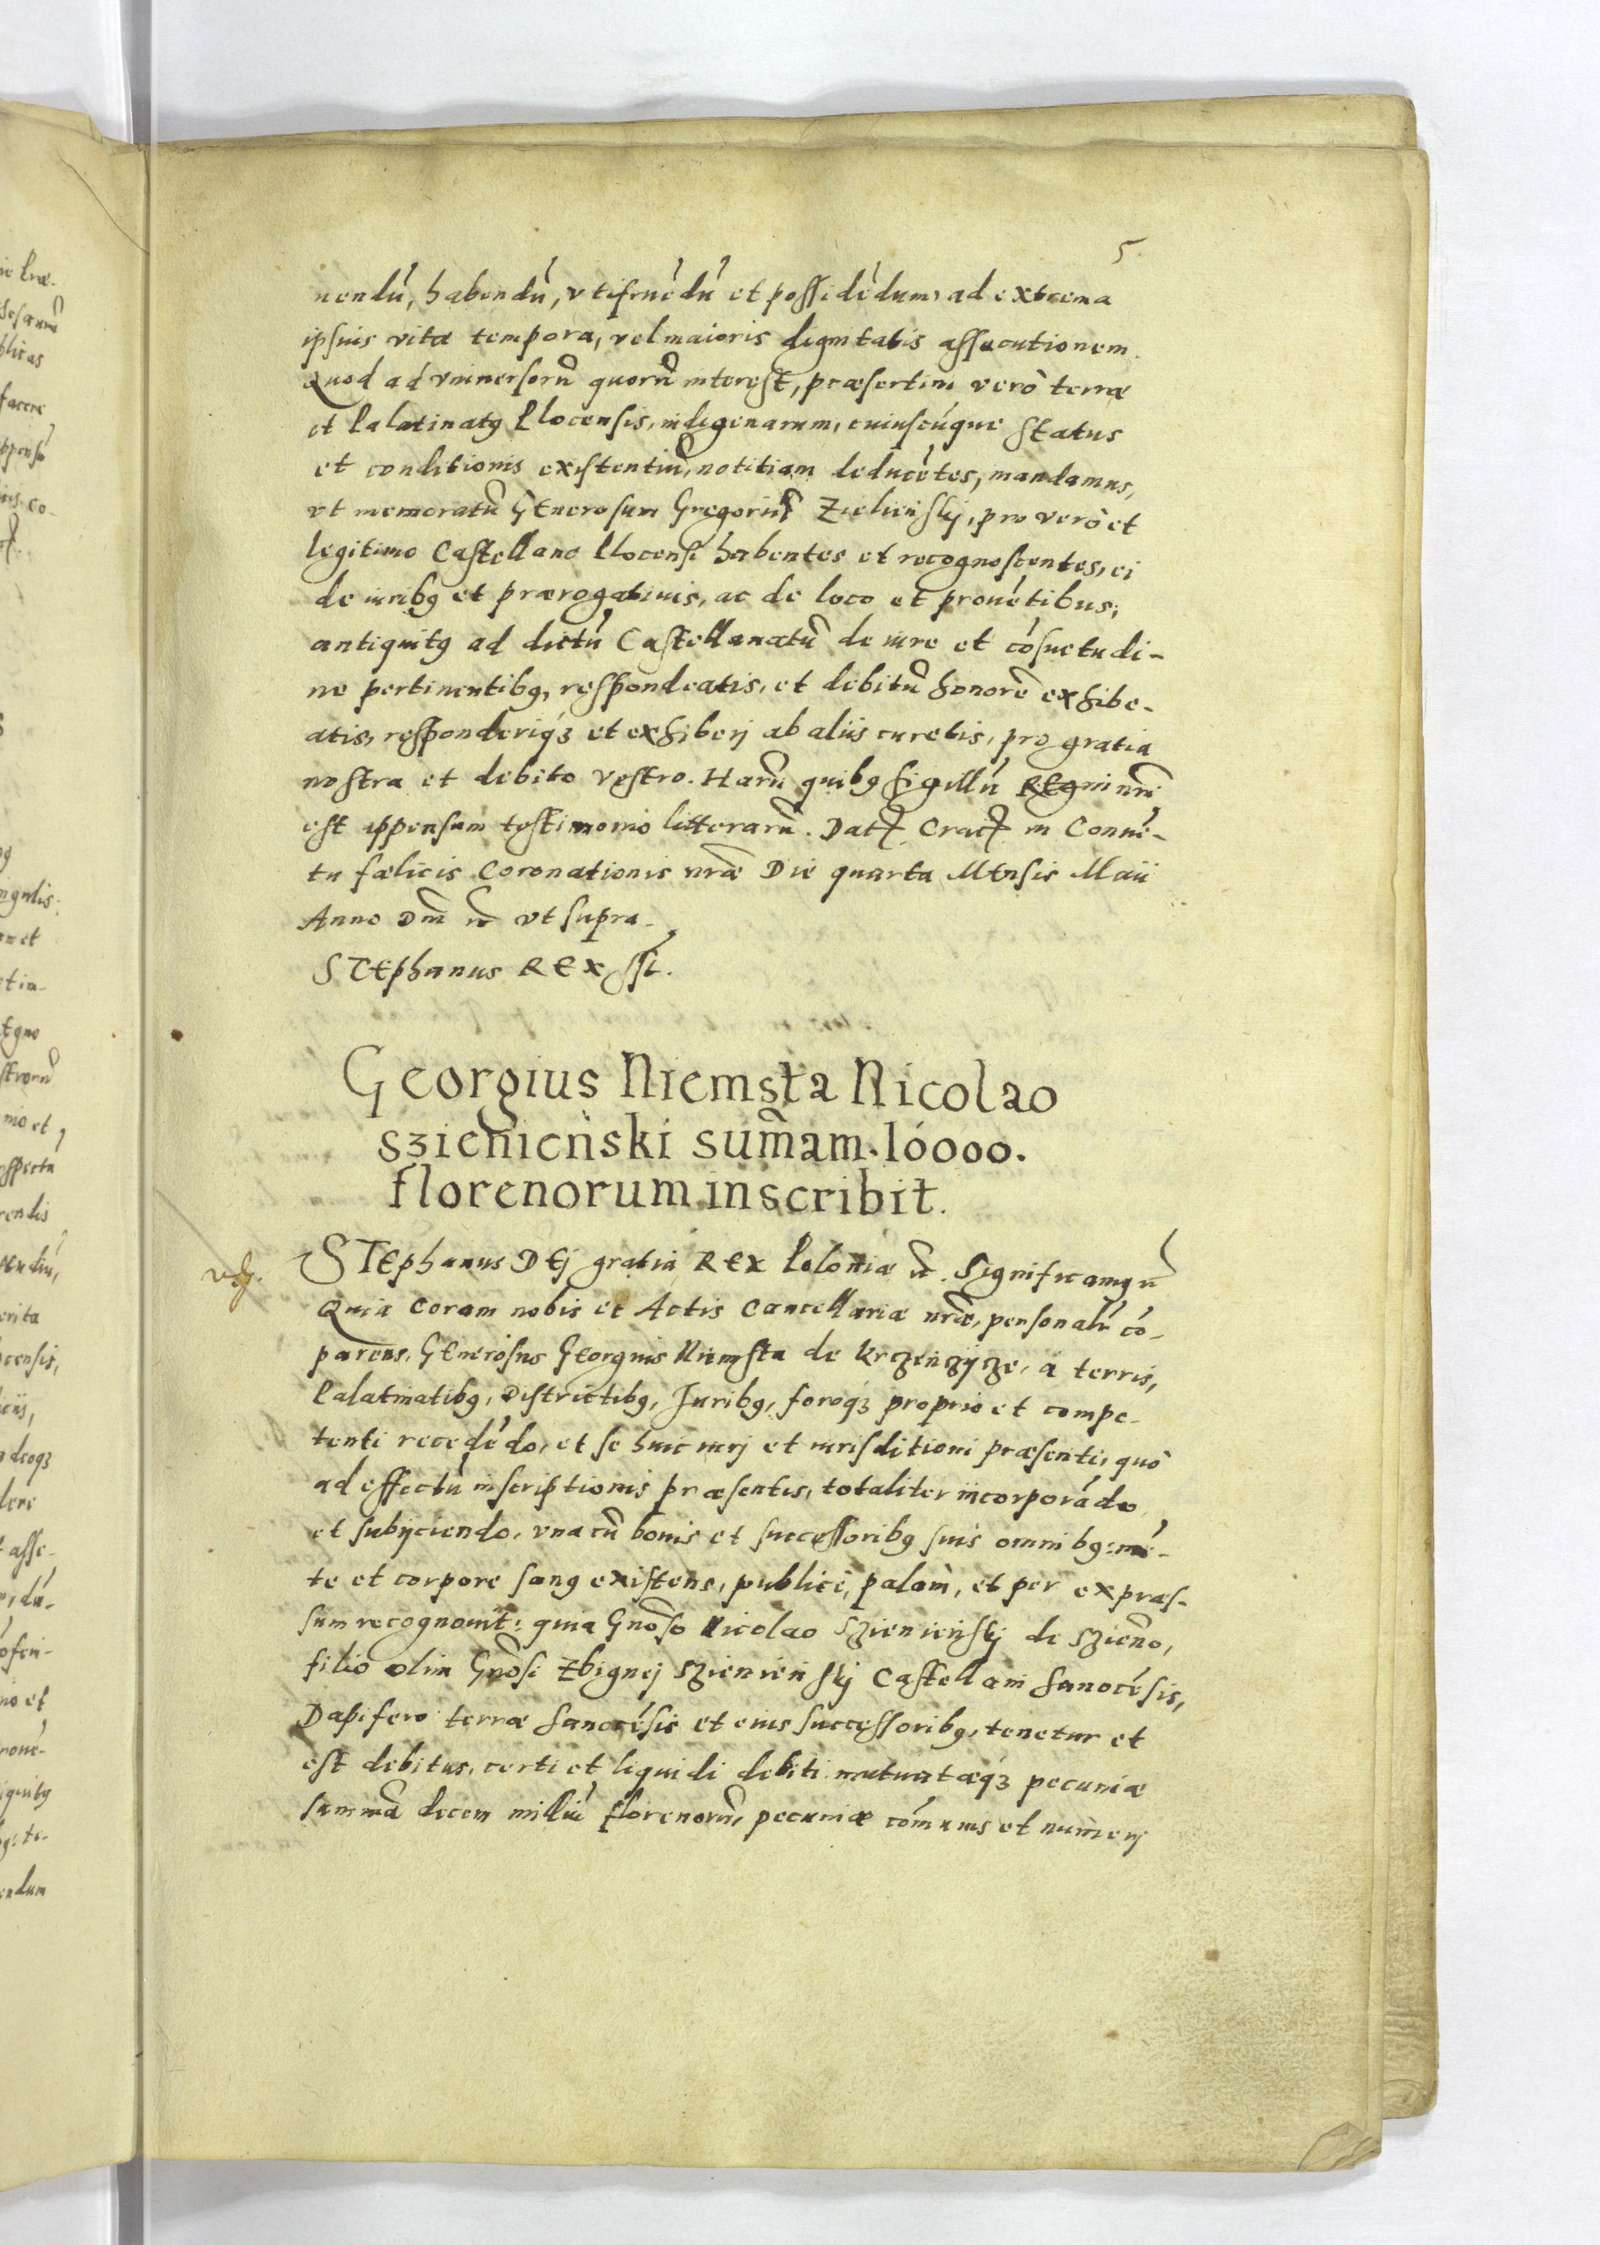 5.
nendú, habendú, vtifruédú et possidédum, ad extrema
ipsius vitæ tempora, vel maioris dignitatis assecutionem.
Quod ad vniuersorũ quorũ interest, præsertim verò terræ
et Palatinatꝰ Plocensis, indigenarum, cuiuscúque Status
et conditionis existentiũ, notitiam deducétes, mandamus,
vt memoratũ GEnerosum Gregoriũ Zielienskj, pro verò et
legitimo Castellano Plocensi habentes et recognoscentes, ei
de iuribꝰ et prærogatiuis, ac de loco et prouétibus,
antiquitꝰ ad dictú Castellanatũ de iure et cósuetudi-
ne pertinentibꝰ, respondeatis, et debitũ honorẽ exhibe-
atis, responderiqꝫ et exhiberj ab aliis curetis, pro gratia
nostra et debito vestro. Harũ quibꝰ sigillú REgni nr̃i
est appensum testimonio litterarũ. Datꝭ Cracꝭ in Conué-
tu fælicis Coronationis nr̃æ Die quarta MEnsis Maii
Anno Dm̃ ut supra.
STEphanus REx sst.
Georgius Niemsta Nicolao
szienieński sum̃am. 10000.
florenorum inscribit.
STEphanus DEj gratia REx Poloniæ ẽt. Significamꝰ ẽt
Quia coram nobis et Actis Cancellariæ nr̃æ, personalr̃ có-
parens, GEnerosus GEorgius Niemsta de Krzenzÿze, a terris,
Palatinatibꝰ, Districtibꝰ, Juribꝰ, foroqꝫ proprio et compe-
tenti recedédo, et se huic iurj et iurisditioni præsenti, quò
ad effectú inscriptionis præsentis, totaliter incorporádo
et subÿciendo, vna cũ bonis et successoribꝰ suis omnibꝰ: mé-
te et corpore sanꝰ existens, publicè, palàm, et per expræs-
sum recognouit: quia Gnõso Nicolao Szienieńskj de Szienõ,
filio olim Gnõsi Zbignej Szienieńskj Castellani Sanocésis,
Dapifero terræ Sanocésis et eius successoribꝰ, tenetur et
est debitus, certi et liquidi debiti mutuatæqꝫ pecuniæ
summã decem milliú florenorũ, pecuniæ cómunis et numerj